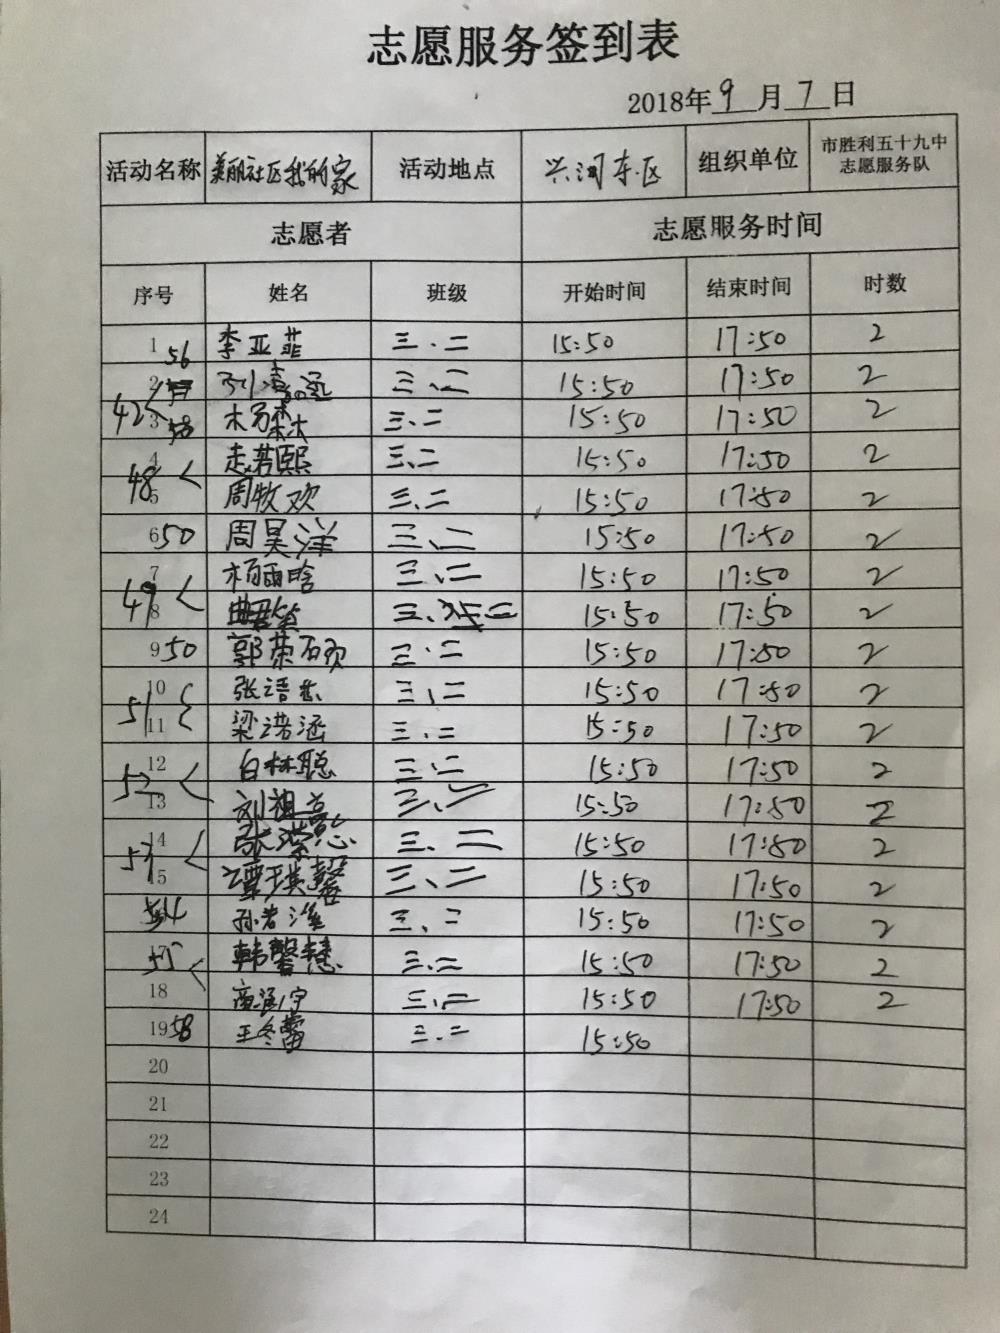 志愿服务签到表
2018年9月7日
活动名称 美丽社区我的家 活动地点 兴河东区 组织单位 市胜利五十九中志愿服务队
志愿者 志愿服务时间
序号 姓名 班级 开始时间 结束时间 时数
1 56 李亚菲 三、二 15:50 17:50 2
2 三、二 15:50 17:50 2
42< 3 58 三、二 15:50 17:50 2
4 孟若熙 三、二 15:50 17:50 2
48< 5 周牧欢 三、二 15:50 17:50 2
6 50 周昊洋 三、二 15:50 17:50 2
7 杨雨晗 三、二 15:50 17:50 2
49< 8 三、二 15:50 17:50 2
9 50 郭荣 三、二 15:50 17:50 2
10 张语 三、二 15:50 17:50 2
51{ 11 梁浩涵 三、二 15:50 17:50 2
12 白林聪 三、二 15:50 17:50 2
52< 13 刘祖 三、二 15:50 17:50 2
14 张 三、二 15:50 17:50 2
53< 15 谭琪馨 三、二 15:50 17:50 2
54 孙若 三、二 15:50 17:50 2
55< 17 韩馨慧 三、二 15:50 17:50 2
18 三、二 15:50 17:50 2
19 58 王冬蕾 三、二 15:50
20
21
22
23
24